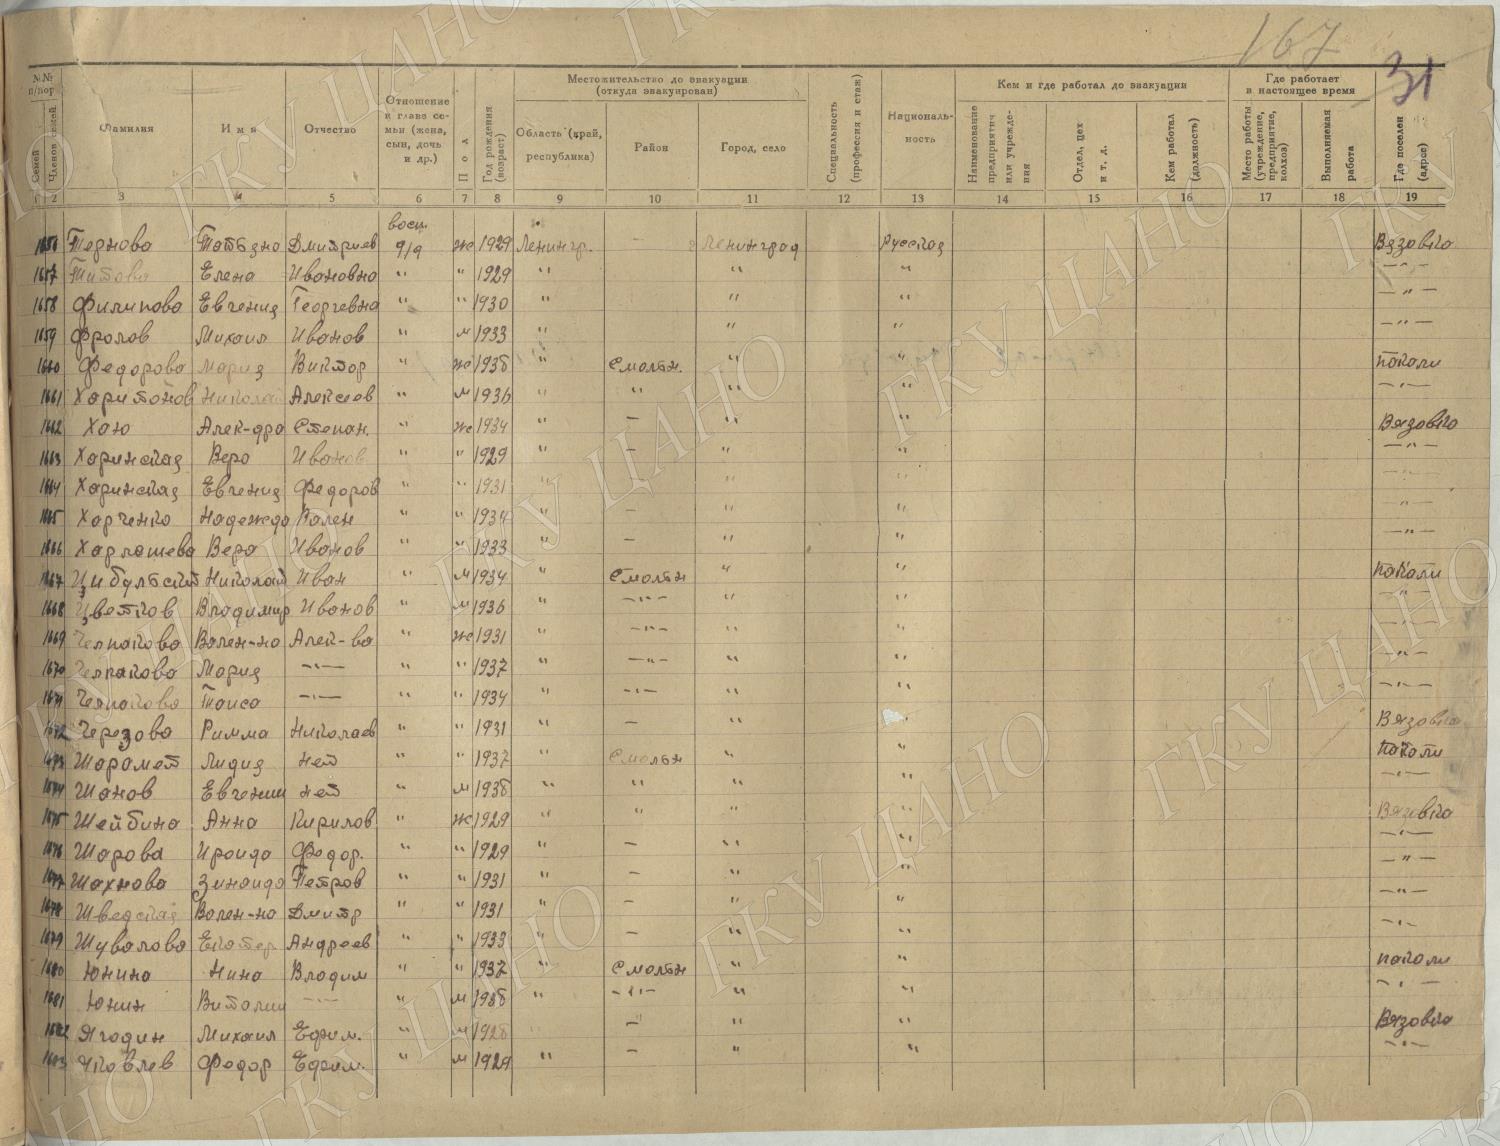 167
31
№№ п/пор
Семей
Членов семей
Фамилия
Имя
Отчество
Отношение к главе семьи (жена, сын, дочь и др.)
Пол
Год рождения (возраст)
Местожительство до эвакуации (откуда эвакуирован)
Область (край, республика)
Район
Город, село
Специальность (профессия и стаж)
Национальность
Кем и где работал до эвакуации
Наименование предприятия или учреждения
Отдел, цех и т. д.
Кем работал (должность)
Где работает в настоящее время
Место работы (учреждение, предприятие, колхоз)
Выполняемая работа
Где поселен (адрес)
1 2 3 4 5 6 7 8 9 10 11 12 13 14 15 16 17 18 19
1656 Тернова Татьяна Дмитриев восп. д/д ж 1929 Ленингр. — Ленинград Русская Вязовка
1657 Титова Елена Ивановна " " 1929 " " " —"—
1658 Филипова Евгения Георгевна " " 1930 " " " —"—
1659 Фролов Михаил Иванов " м 1933 " " " —"—
1660 Федорова Мария Виктор " ж 1938 " Смольн. " " покали
1661 Харитонов Николай Алексеев " м 1936 " " " " —"—
1662 Хаю Алек-дра Степан. " ж 1934 " — " " Вязовка
1663 Харинская Вера Иванов " " 1929 " — " " —"—
1664 Харинская Евгения Федоров " " 1931 " " " —"—
1665 Харченко Надежда Вален " " 1934 " — " " —"—
1666 Харлашева Вера Иванов " " 1933 " — " " —"—
1667 Цибульский Николай Иван " м 1934 " Смольн " " покали
1668 Цветков Владимир Иванов " м 1936 " —"— " " —"—
1669 Челпакова Вален-на Алек-ва " ж 1931 " —"— " " —"—
1670 Челпакова Мария —"— " " 1937 " —"— " " —"—
1671 Челпакова Таиса —"— " " 1934 " —"— " " —"—
1672 Черезова Римма Николаев " " 1931 " — " Вязовка
1673 Шаромет Лидия нет " " 1937 " Смольн " " покали
1674 Шанов Евгении нет " м 1938 " " " " —"—
1675 Шейбина Анна Кирилов " ж 1929 " " " " Вязовка
1676 Шарова Ироида Федор. " " 1929 " — " " —"—
1677 Шахнова Зинаида Петров " " 1931 " — " " —"—
1678 Шведская Вален-на Дмитр " " 1931 " — " " —"—
1679 Шувалова Екатер Андреев " " 1933 " — " " —"—
1680 Юнина Нина Владим " " 1937 " Смольн " " покали
1681 Юнин Витолии —"— " м 1938 " —"— " " —"—
1682 Ягодин Михаил Ефим. " м 1928 — " " Вязовка
1683 Яковлев Федор Ефим. " м 1929 " — " " —"—
ГКУ ЦАНО